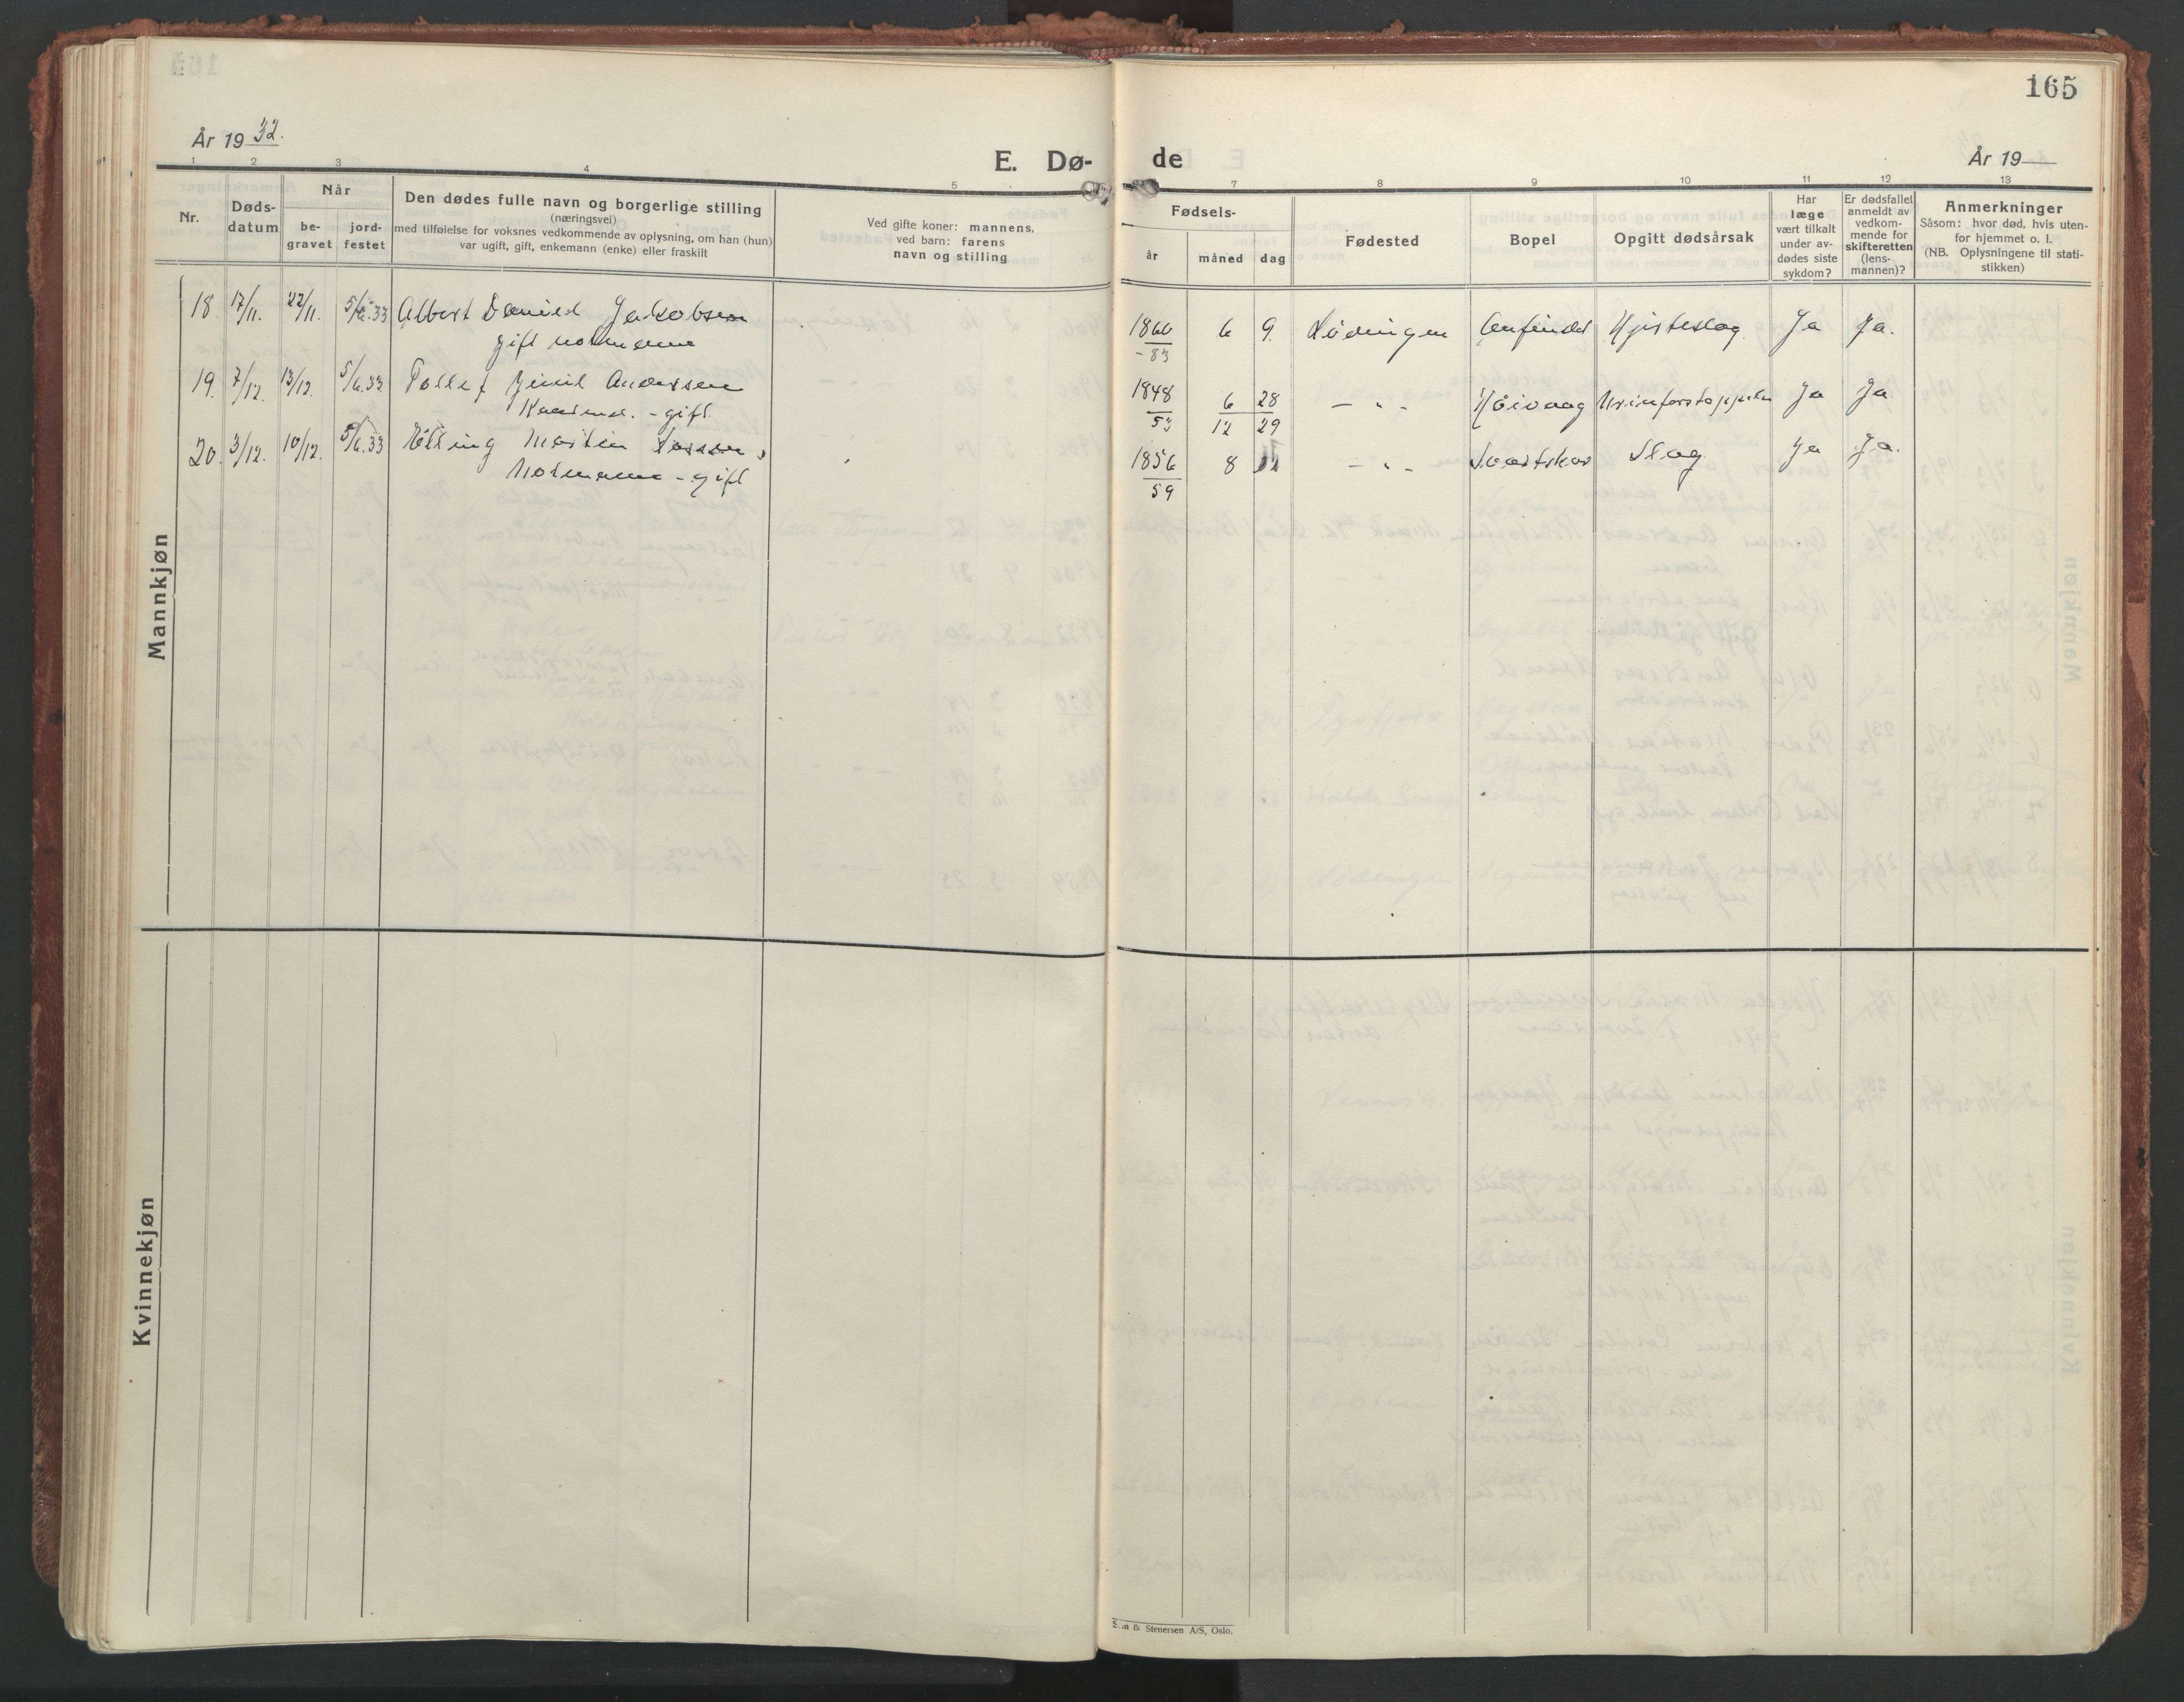 165
År 19 32.
E. Dø- de
År 19
1 2 3 4 5 7 8 9 10 11 12 13
Nr.
Døds-
datum
Når
be-
gravet
jord-
festet
Den dødes fulle navn og borgerlige stilling
(næringsvei)
med tilføielse for voksnes vedkommende av oplysning, om han (hun)
var ugift, gift, enkemann (enke) eller fraskilt
Ved gifte koner: mannens,
ved barn: farens
navn og stilling
Fødsels-
år
måned
dag
Fødested
Bopel
Opgitt dødsårsak
Har
læge
vært tilkalt
under av-
dødes siste
sykdom?
Er dødsfallet
anmeldt av
vedkom-
mende for
skifteretten
(lens-
mannen)?
Anmerkninger
Såsom: hvor død, hvis uten-
for hjemmet o. l.
(NB. Oplysningene til stati-
stikken)
Mannkjøn
18. 17/11. 22/11. 5/6.33 Albert Daniel Jakobsen 1866 6 9. Lødingen Hjerteslag Ja Ja.
gift nordmann -83
19. 7/12. 13/12. 5/6.33 Tollef Andersen 1848 6 28 - " - Høivaag Urinforstoppelse Ja Ja
- gift. 53 12 29
20. 3/12. 10/12. 5/6.33 Elling Martin 1856 8 - " - Svartskar Slag Ja Ja.
Nordmann - gift 59
Kvinnekjøn
& Stenersen A/S, Oslo.